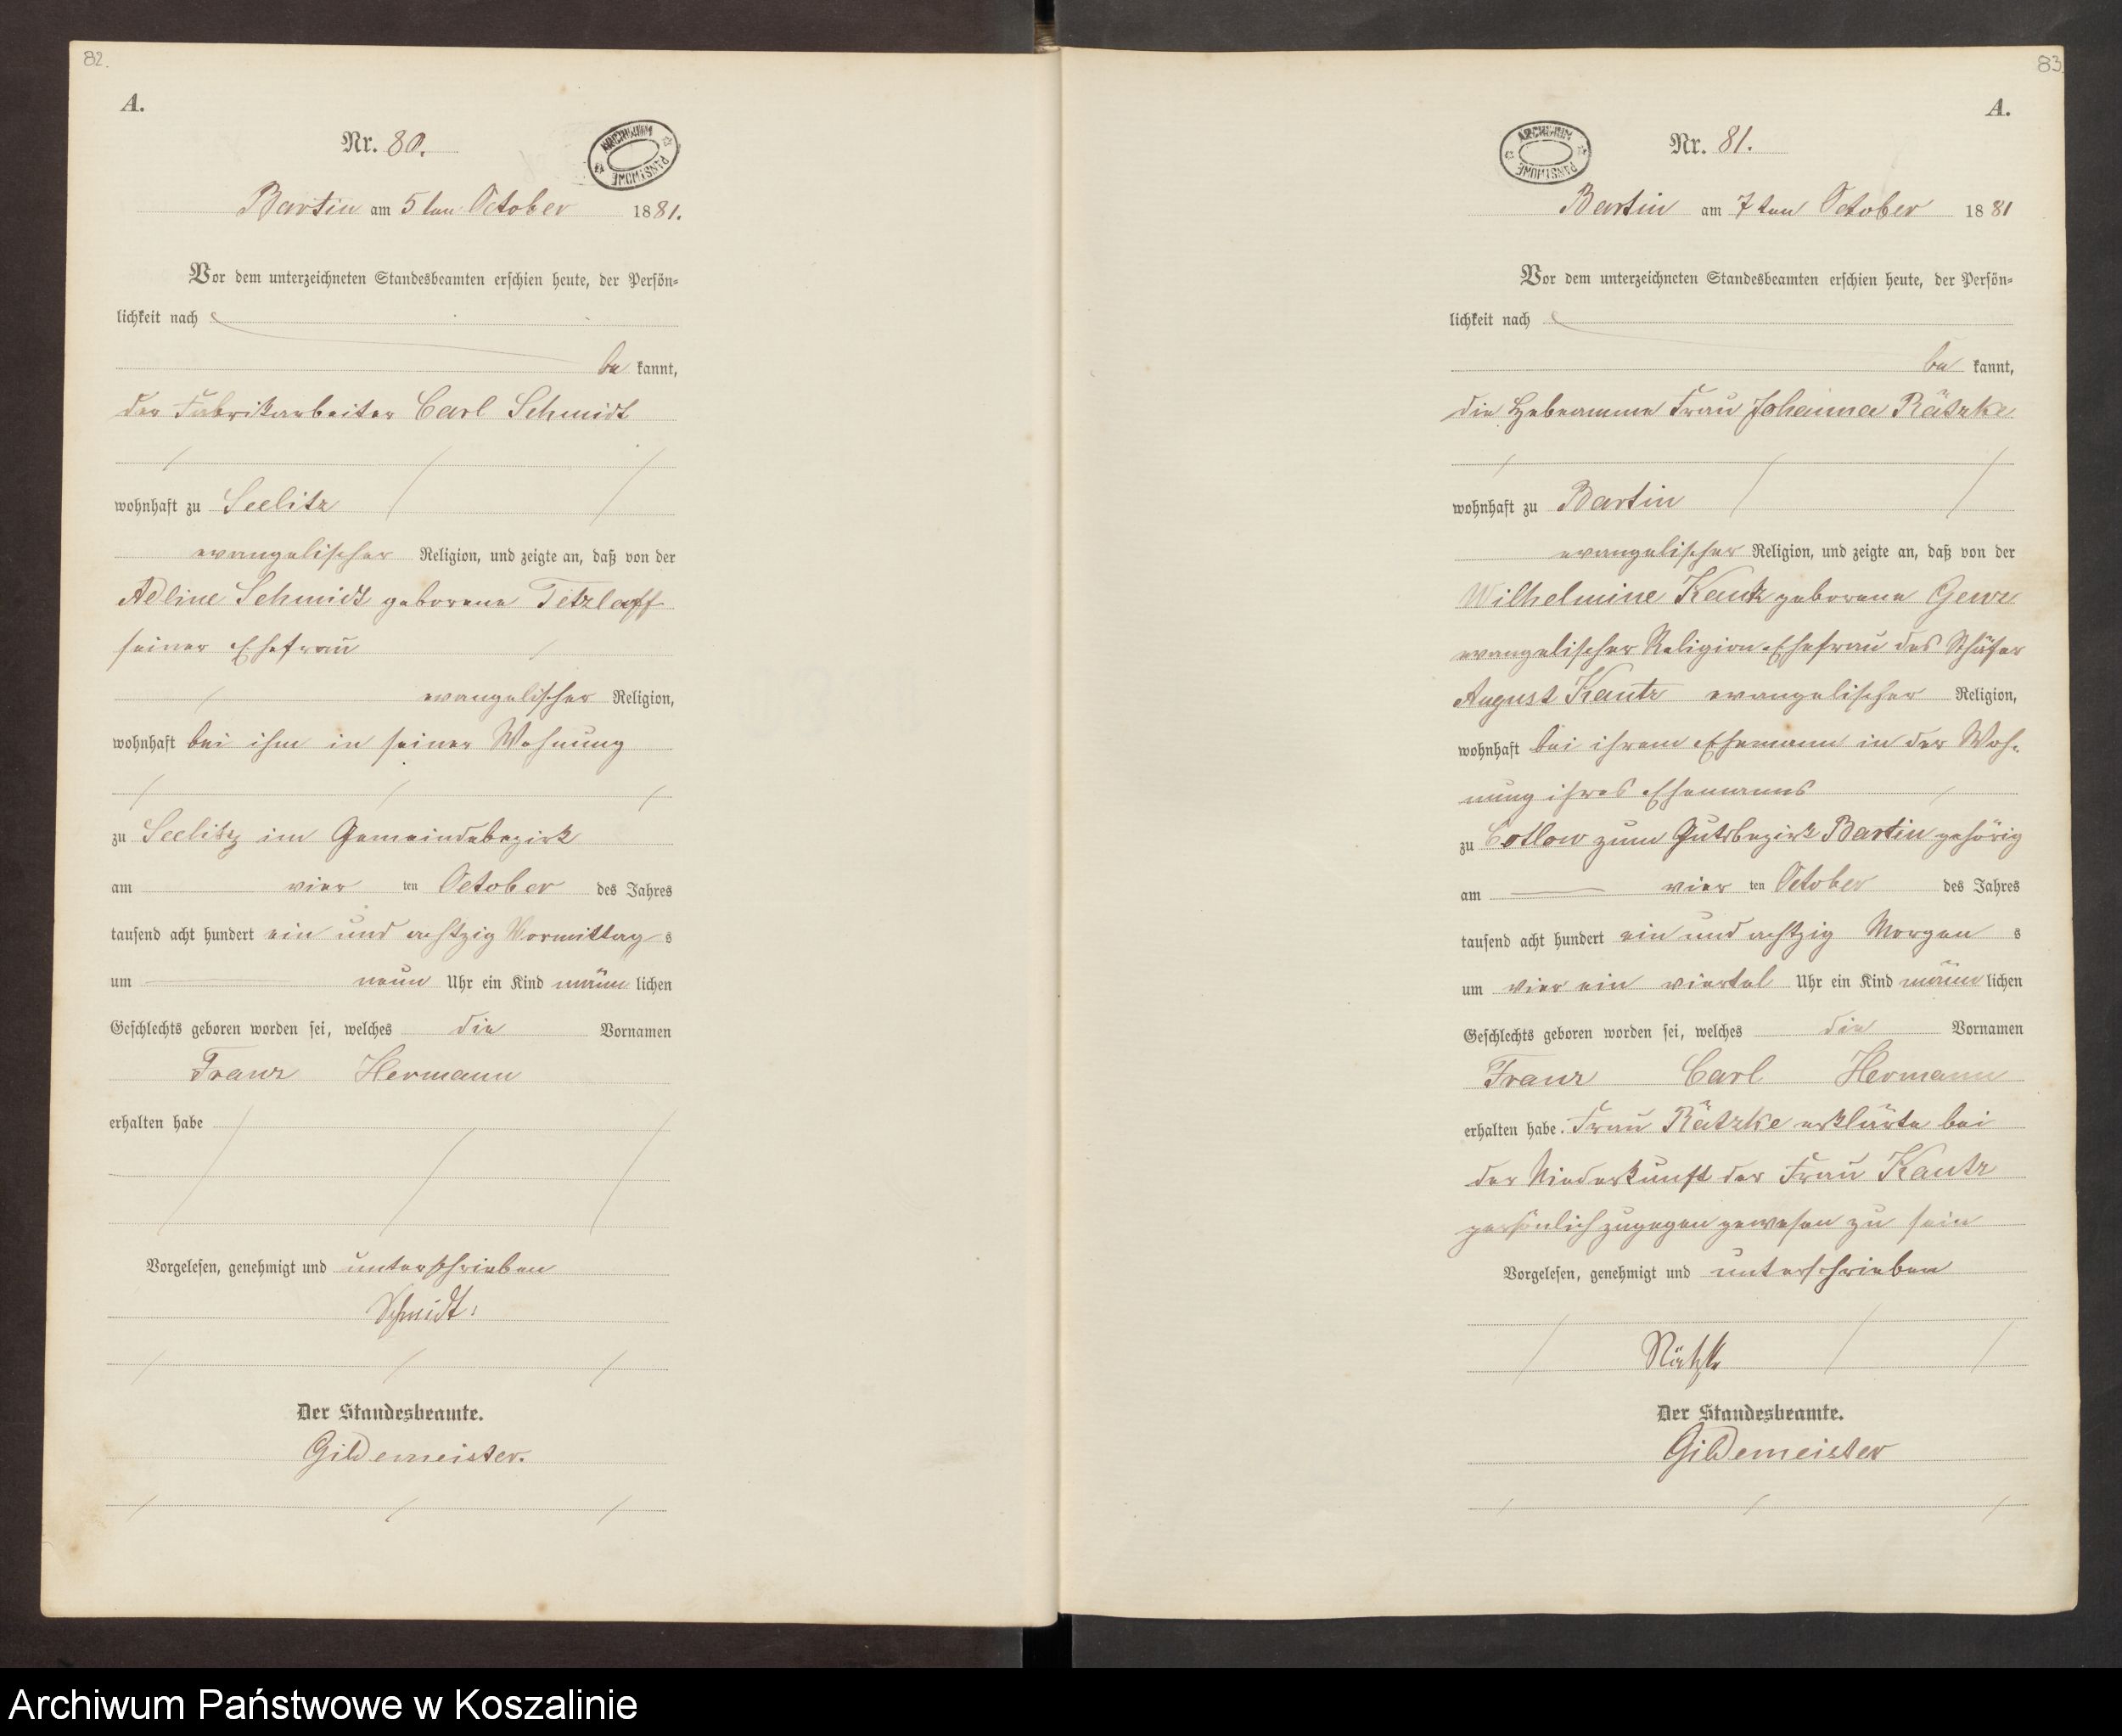 82.
A.
Nr. 80.
ARCHIWUM PAŃSTWOWE
Bartin am 5ten October 1881.
Vor dem unterzeichneten Standesbeamten erschien heute, der Persön-
lichkeit nach
be kannt,
der Fabrikarbeiter Carl Schmidt
wohnhaft zu Seelitz
evangelischer Religion, und zeigte an, daß von der
Adline Schmidt geborene Tetzlaff
seiner Ehefrau
evangelischer Religion,
wohnhaft bei ihm in seiner Wohnung
zu Seelitz im Gemeindebezirk
am vier ten October des Jahres
tausend acht hundert ein und achtzig Vormittag s
um neun Uhr ein Kind männ lichen
Geschlechts geboren worden sei, welches die Vornamen
Franz Hermann
erhalten habe
Vorgelesen, genehmigt und unterschrieben
Schmidt.
Der Standesbeamte.
Gildemeister.
83.
A.
ARCHIWUM PAŃSTWOWE
Nr. 81.
Bartin am 7ten October 1881
Vor dem unterzeichneten Standesbeamten erschien heute, der Persön-
lichkeit nach
be kannt,
die Hebeamme Frau Johanna Rätzke
wohnhaft zu Bartin
evangelischer Religion, und zeigte an, daß von der
Wilhelmine Kautz geborene
evangelischer Religion Ehefrau des Schäfer
August Kautz evangelischer Religion,
wohnhaft bei ihrem Ehemann in der Woh-
nung ihres Ehemanns
zu Cotlow zum Gutsbezirk Bartin gehörig
am vier ten October des Jahres
tausend acht hundert ein und achtzig Morgen s
um vier ein viertel Uhr ein Kind männ lichen
Geschlechts geboren worden sei, welches die Vornamen
Franz Carl Hermann
erhalten habe. Frau Rätzke erklärte bei
der Niederkunft der Frau Kautz
persönlich zugegen gewesen zu sein
Vorgelesen, genehmigt und unterschrieben
Rätzke
Der Standesbeamte.
Gildemeister
Archiwum Państwowe w Koszalinie